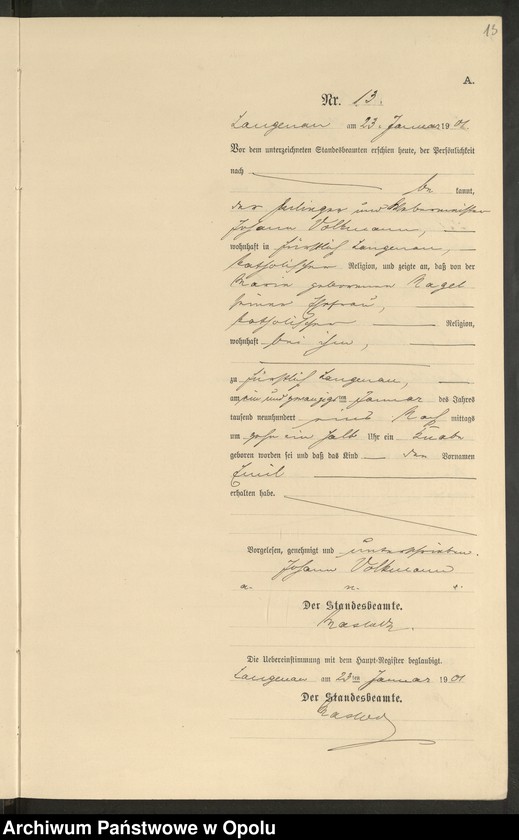 13
A.
Nr. 13.
Langenau am 23. Januar 1901.
Vor dem unterzeichneten Standesbeamten erschien heute, der Persönlichkeit
nach be kannt,
der und Webermeister
Johann Volkmann,
wohnhaft in Fürstlich Langenau,
katholischer Religion, und zeigte an, daß von der
Maria geborenen Nagel
seiner Ehefrau,
katholischer Religion,
wohnhaft bei ihm,
zu Fürstlich Langenau,
am ein und zwanzigsten Januar des Jahres
tausend neunhundert eins Nach mittags
um ein halb Uhr ein Knabe
geboren worden sei und daß das Kind den Vornamen
Emil
erhalten habe.
Vorgelesen, genehmigt und unterschrieben.
Johann Volkmann
Der Standesbeamte.
Die Uebereinstimmung mit dem Haupt-Register beglaubigt.
Langenau am 23ten Januar 1901
Der Standesbeamte.
Archiwum Państwowe w Opolu